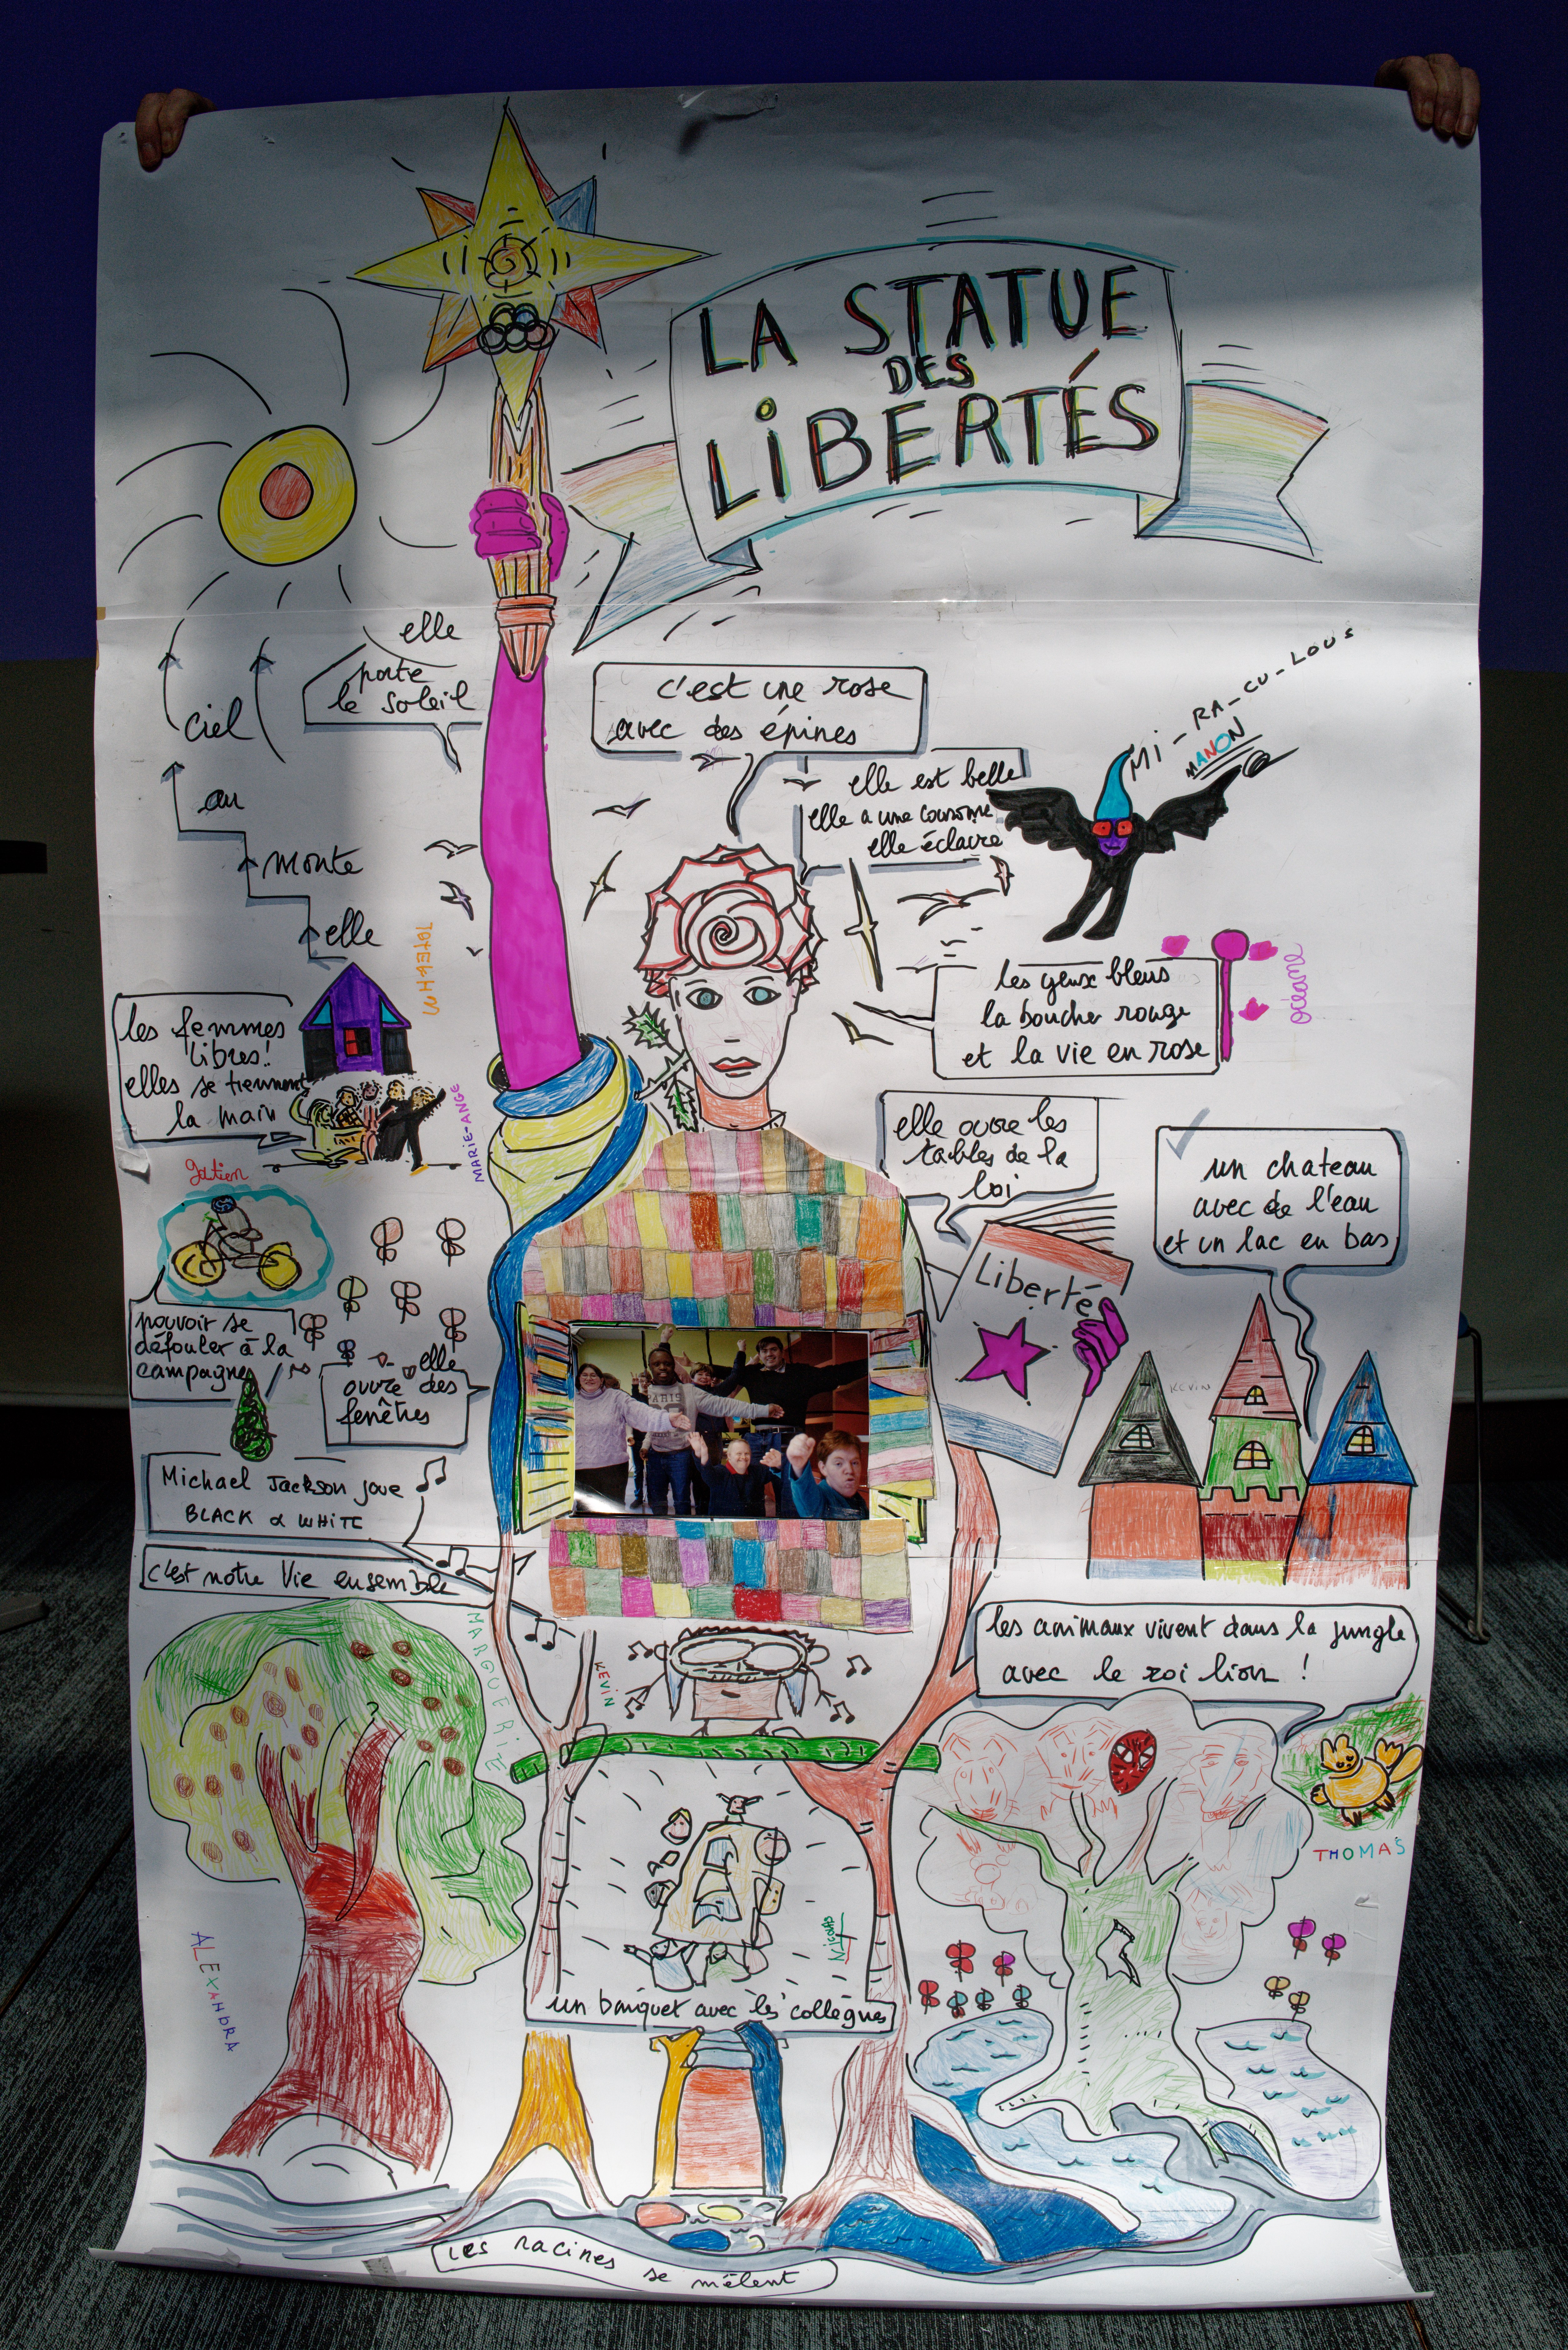 LA STATUE
DES
LIBERTÉS
elle
porte
le soleil
ciel
au
monte
elle
c'est une rose
avec des épines
elle est belle
elle a une couronne
elle éclaire
MI-RA-CU-LOUS
MANON
les yeux bleus
la bouche rouge
et la vie en rose
océane
les femmes
libres!
elles se tiennent
la main
MARIE-ANGE
elle ouvre les
tables de la
loi
Liberté
un chateau
avec de l'eau
et un lac en bas
KEVIN
gatien
pouvoir se
défouler à la
campagne
elle
ouvre des
fenêtres
PARIS
Michael Jackson joue
BLACK & WHITE
c'est notre Vie ensemble
MARGUERITE
KEVIN
les animaux vivent dans la jungle
avec le roi lion !
THOMAS
ALEXANDRA
NICOLAS
un banquet avec les collègues
Les racines
se mêlent